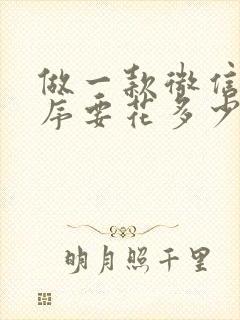 做一款微信
序要花多少
明月照千里